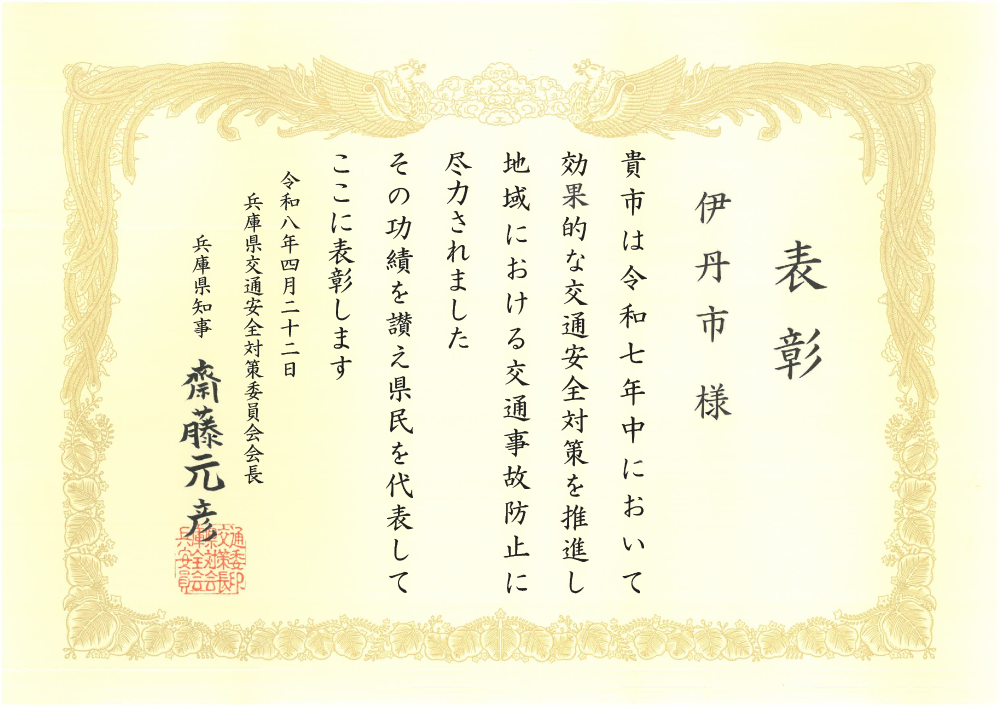 表彰
伊丹市様
貴市は令和七年中において
効果的な交通安全対策を推進し
地域における交通事故防止に
尽力されました
その功績を讃え県民を代表して
ここに表彰します
令和八年四月二十二日
兵庫県交通安全対策委員会会長
兵庫県知事 齋藤元彦
交通委印
県対策長
庫全会会
兵安員